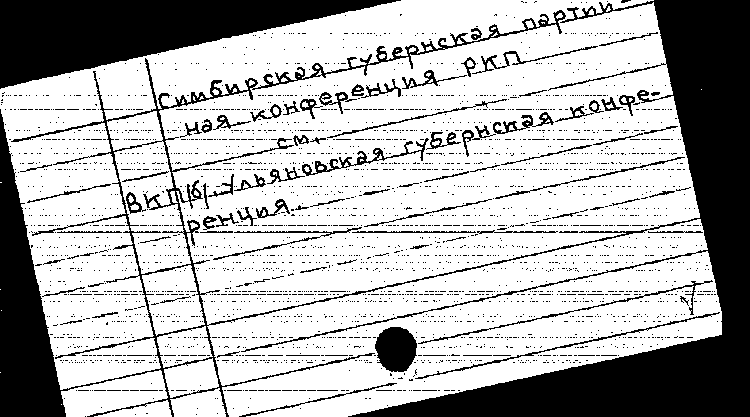 Симбирская губернская партий-
ная конференция РКП
см.
ВКП/б/. Ульяновская губернская конфе-
ренция.